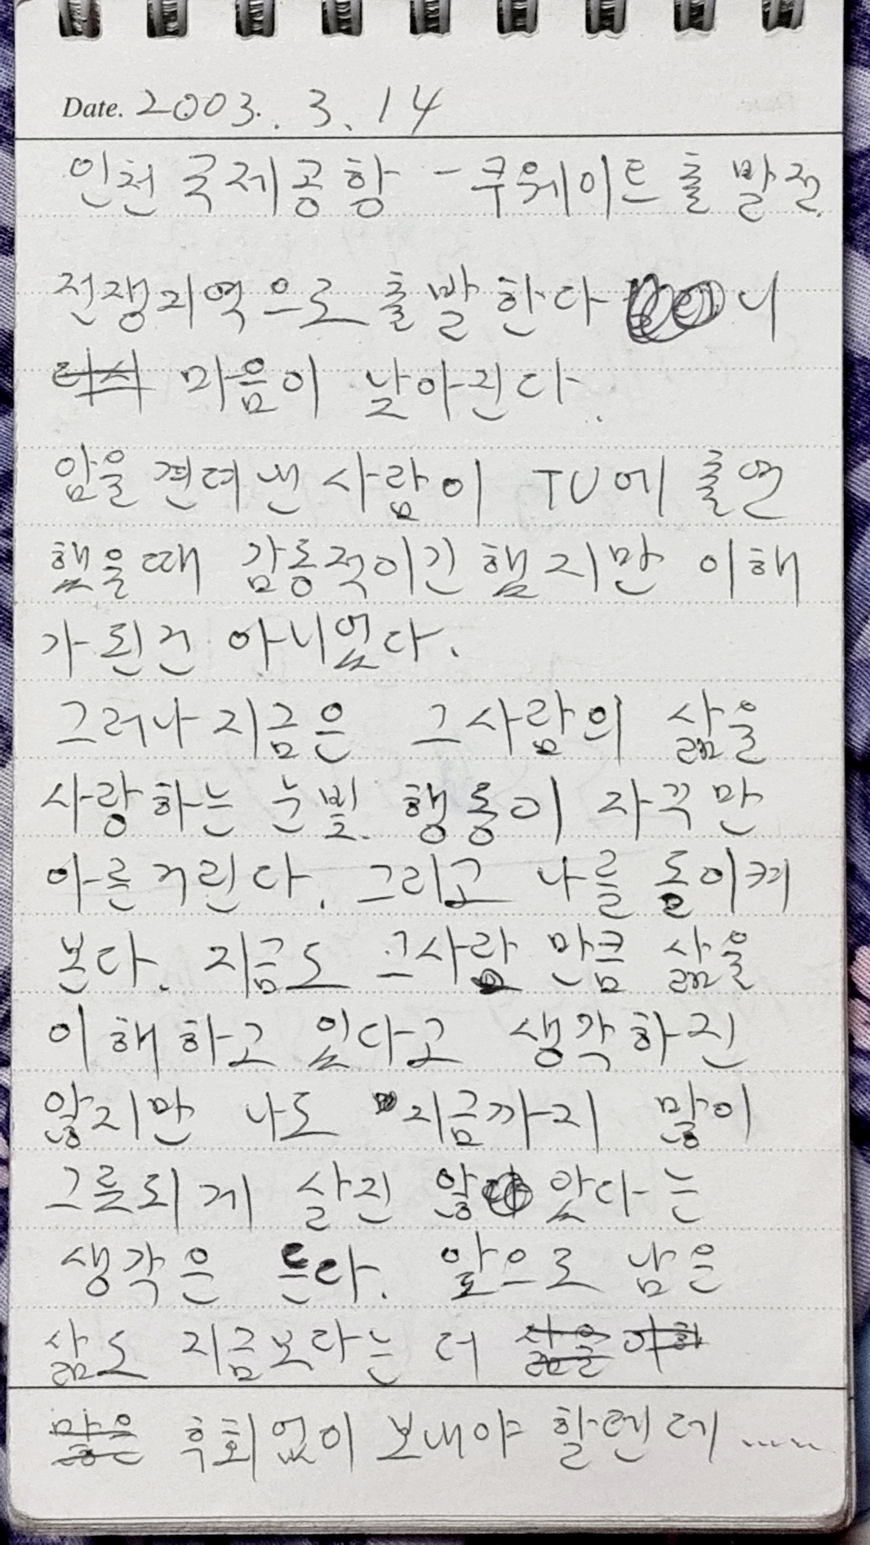 Date. 2003. 3. 14
인천국제공항 - 쿠웨이트출발전.
전쟁지역으로 출발한다 니
마음이 날아진다.
암을 견뎌낸 사람이 TV에 출연
했을때 감동적이긴 했지만 이해
가 된건 아니였다.
그러나 지금은 그사람의 삶을
사랑하는 눈빛. 행동이 자꾹만
아른거린다. 그리고 나를 돌이켜
본다. 지금도 그사람 만큼 삶을
이해하고 있다고 생각하진
않지만 나도 지금까지 많이
그릇되게 살진 않 았다는
생각은 든다. 앞으로 남은
삶도 지금보다는 더
후회없이 보내야 할텐데 .....